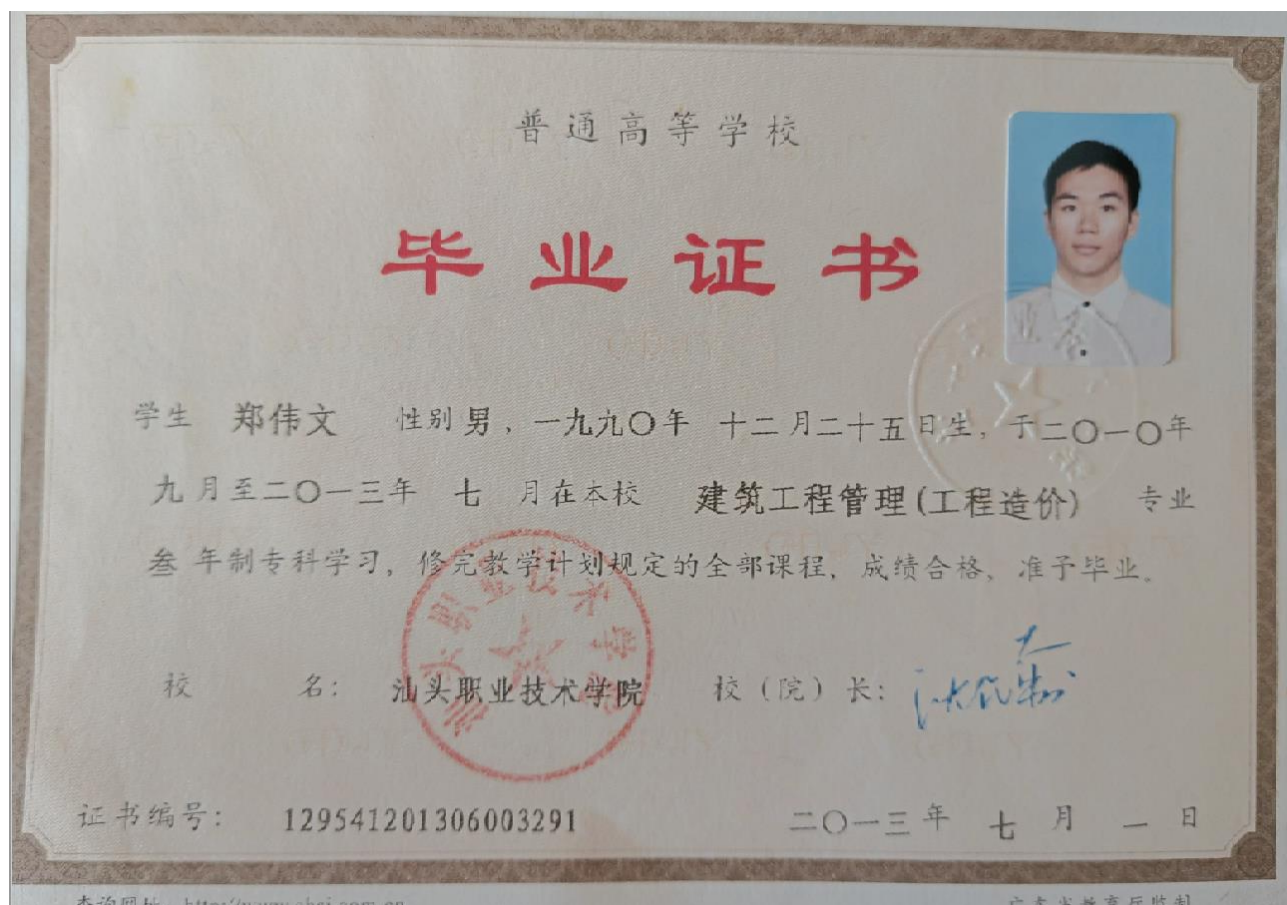 普通高等学校
毕业证书
学生 郑伟文 性别 男，一九九〇年 十二月二十五日生，于二〇一〇年
九月至二〇一三年 七 月在本校 建筑工程管理(工程造价) 专业
叁 年制专科学习，修完教学计划规定的全部课程，成绩合格，准予毕业。
校 名： 汕头职业技术学院 校（院）长：
汕头职业技术学院
证书编号： 129541201306003291 二〇一三年 七 月 一 日
查询网址：http://www.chsi.com.cn 广东省教育厅监制